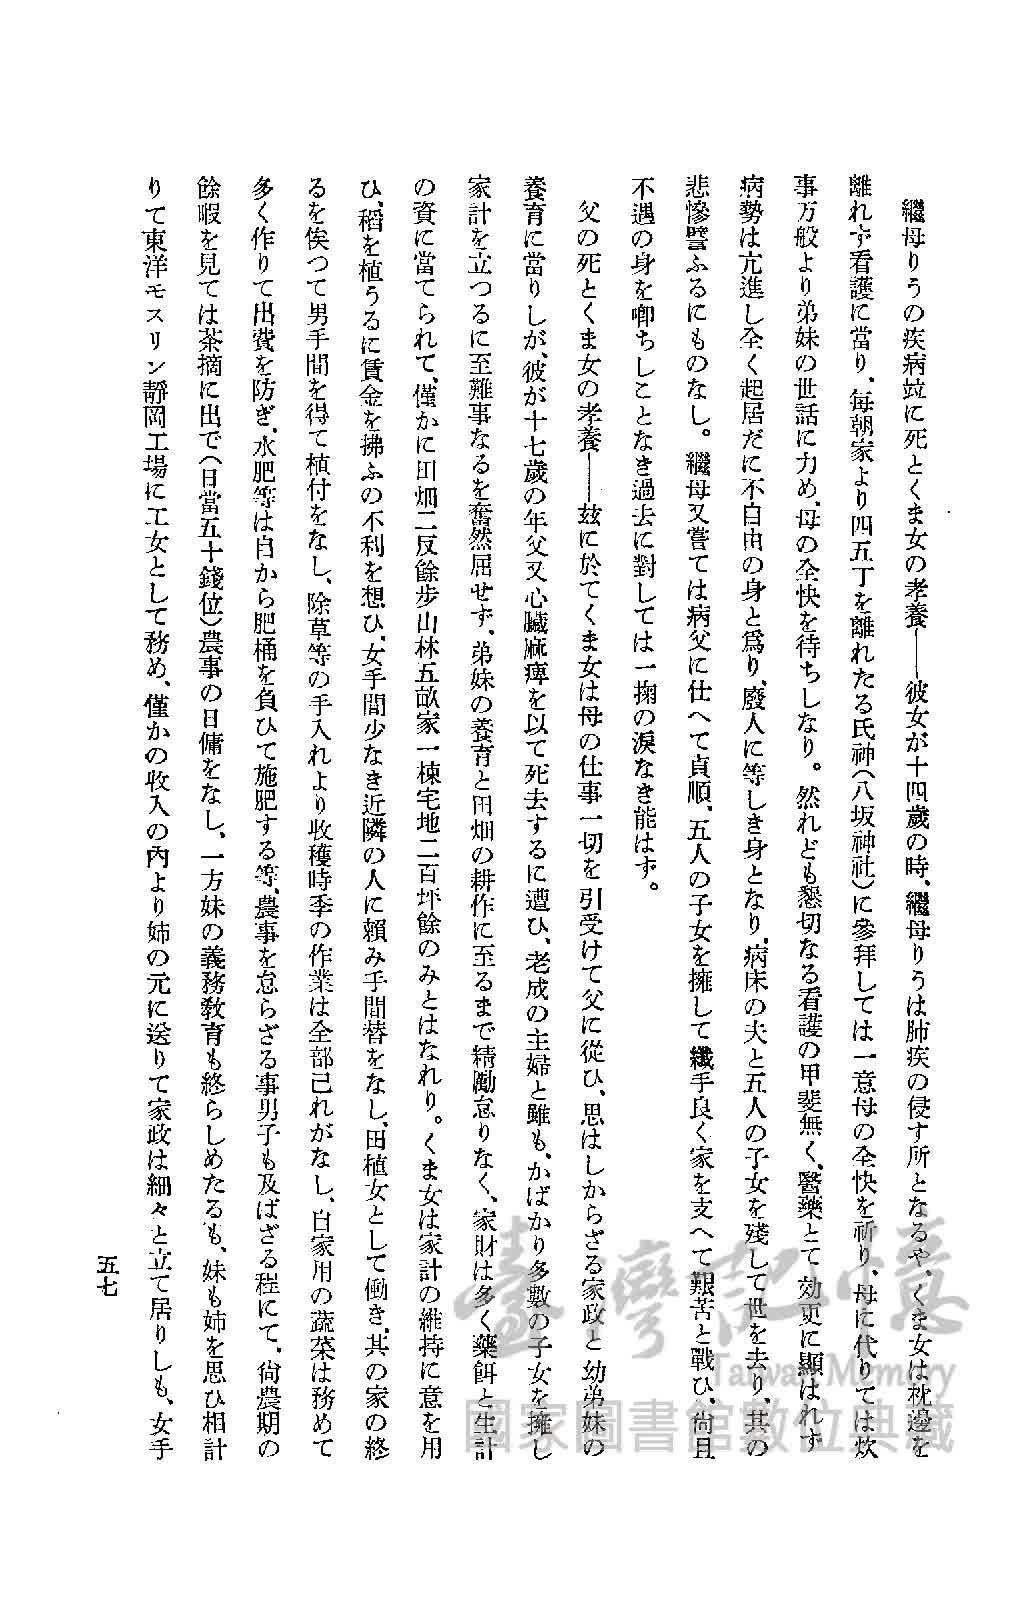 繼母りうの疾病竝に死とくま女の孝養――彼女が十四歲の時、繼母りうは肺疾の侵す所となるや、くま女は枕邊を
離れず看護に當り、每朝家より四五丁を離れたる氏神(八坂神社)に參拜しては一意母の全快を祈り、母に代りては炊
事万般より弟妹の世話に力め、母の全快を待ちしなり。然れども懇切なる看護の甲斐無く、醫藥とて効更に顯はれず
病勢は亢進し全く起居だに不自由の身と爲り、廢人に等しき身となり、病床の夫と五人の子女を殘して世を去り、其の
悲慘譬ふるにものなし。繼母又嘗ては病父に仕へて貞順、五人の子女を擁して纖手良く家を支へて艱苦と戰ひ、尙且
不遇の身を喞ちしことなき過去に對しては一掬の淚なき能はず。
父の死とくま女の孝養――玆に於てくま女は母の仕事一切を引受けて父に從ひ、思はしからざる家政と幼弟妹の
養育に當りしが、彼が十七歲の年父又心臟痲痺を以て死去するに遭ひ、老成の主婦と雖も、かばかり多數の子女を擁し
家計を立つるに至難事なるを奮然屈せず、弟妹の養育と田畑の耕作に至るまで精勵怠りなく、家財は多く藥餌と生計
の資に當てられて、僅かに田畑二反餘步山林五畝家一棟宅地二百坪餘のみとはなれり。くま女は家計の維持に意を用
ひ、稻を植うるに賃金を拂ふの不利を想ひ、女手間少なき近隣の人に賴み手間替をなし、田植女として働き、其の家の終
るを俟つて男手間を得て植付をなし、除草等の手入れより收穫時季の作業は全部己れがなし、自家用の蔬菜は務めて
多く作りて出費を防ぎ、水肥等は自から肥桶を負ひて施肥する等、農事を怠らざる事男子も及ばざる程にて、尙農期の
餘暇を見ては茶摘に出で(日當五十錢位)農事の日傭をなし、一方妹の義務敎育も終らしめたるも、妹も姉を思ひ相計
りて東洋モスリン靜岡工場に工女として務め、僅かの收入の內より姉の元に送りて家政は細々と立て居りしも、女手
五七
臺灣記憶
Taiwan Memory
國家圖書館數位典藏